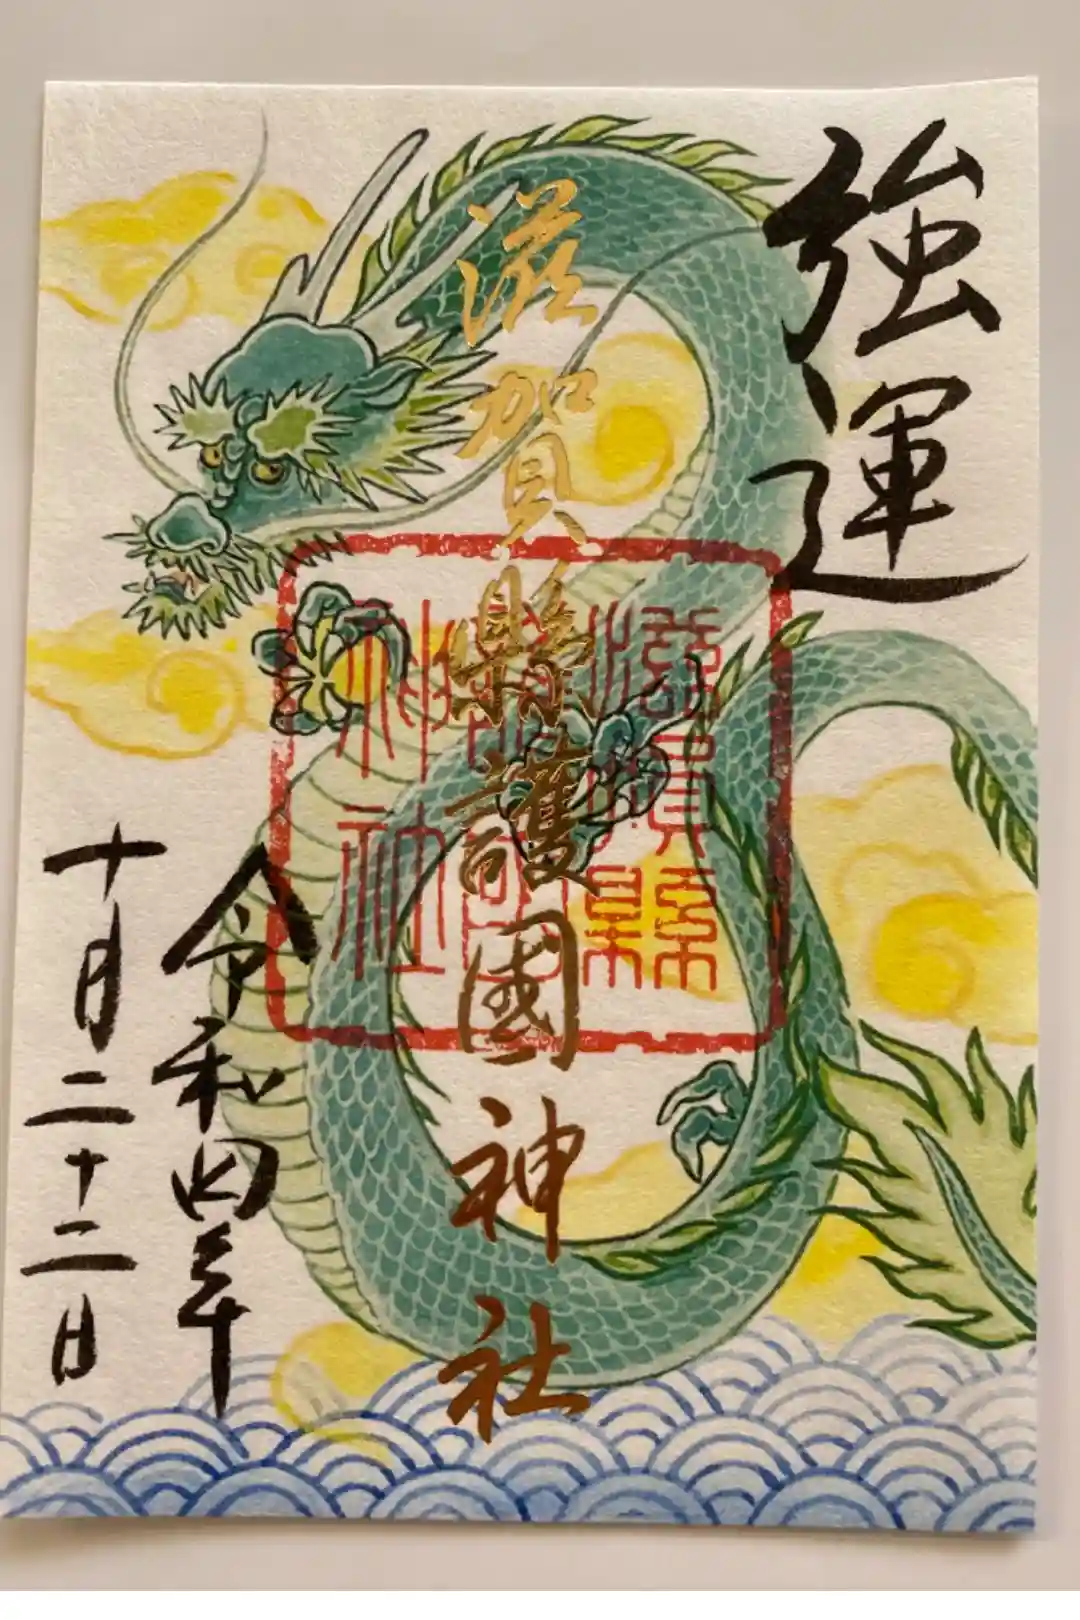 強運
滋賀縣護國神社
滋賀縣
護國
神社
令和四年
十月二十二日